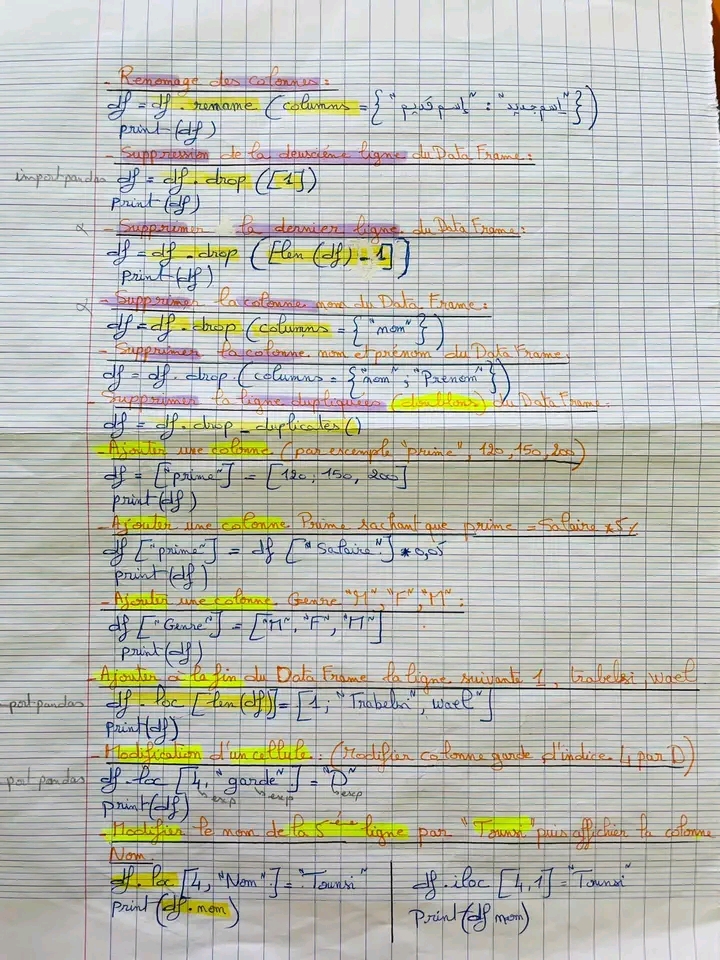 - Renomage des colonnes :
df = df.rename (columns = {"إسم قديم" : "إسم جديد"})
print(df)
- Suppression de la deuscième ligne du Data Frame :
import pandas df = df.drop ([1])
Print (df)
- Supprimer la dernier ligne du Data Frame :
df = df.drop ([len (df) - 1])
Print (df)
- Supprimer la colonne nom du Data Frame :
df = df.drop (columns = {"nom"})
- Supprimer la colonne nom et prénom du Data Frame.
df = df.drop (columns = {"nom" ; "Prenom"})
- Supprimer la ligne dupliquées (doublons) du Data Frame.
df = df.drop_duplicates ()
- Ajouter une colonne (par escemple "prime", 120, 150, 200)
df = ["prime"] = [120 ; 150, 200]
print (df)
- Ajouter une colonne Prime sachant que prime = Salaire * 5%
df ["prime"] = df ["Salaire"] * 0,05
print (df)
- Ajouter une colonne Genre "M", "F", "M" :
df ["Genre"] = ["M", "F", "M"]
print (df)
- Ajouter à la fin du Data Frame la ligne suivante 1, trabelsi, wael
port pandas df.loc [len(df)] = [1 ; "Trabelsi", wael"]
Print(df)
- Modification d'un cellule : (Modifier colonne garde d'indice 4 par D)
port pandas df.loc [4, "garde"] = "D"
exp exp exp
print (df)
- Modifier le nom de la 5ème ligne par "Tounsi" puis affichier la colonne
Nom.
df.loc [4, "Nom"] = "Tounsi"
Print (df.nom)
df.iloc [4,1] = "Tounsi"
Print (df nom)